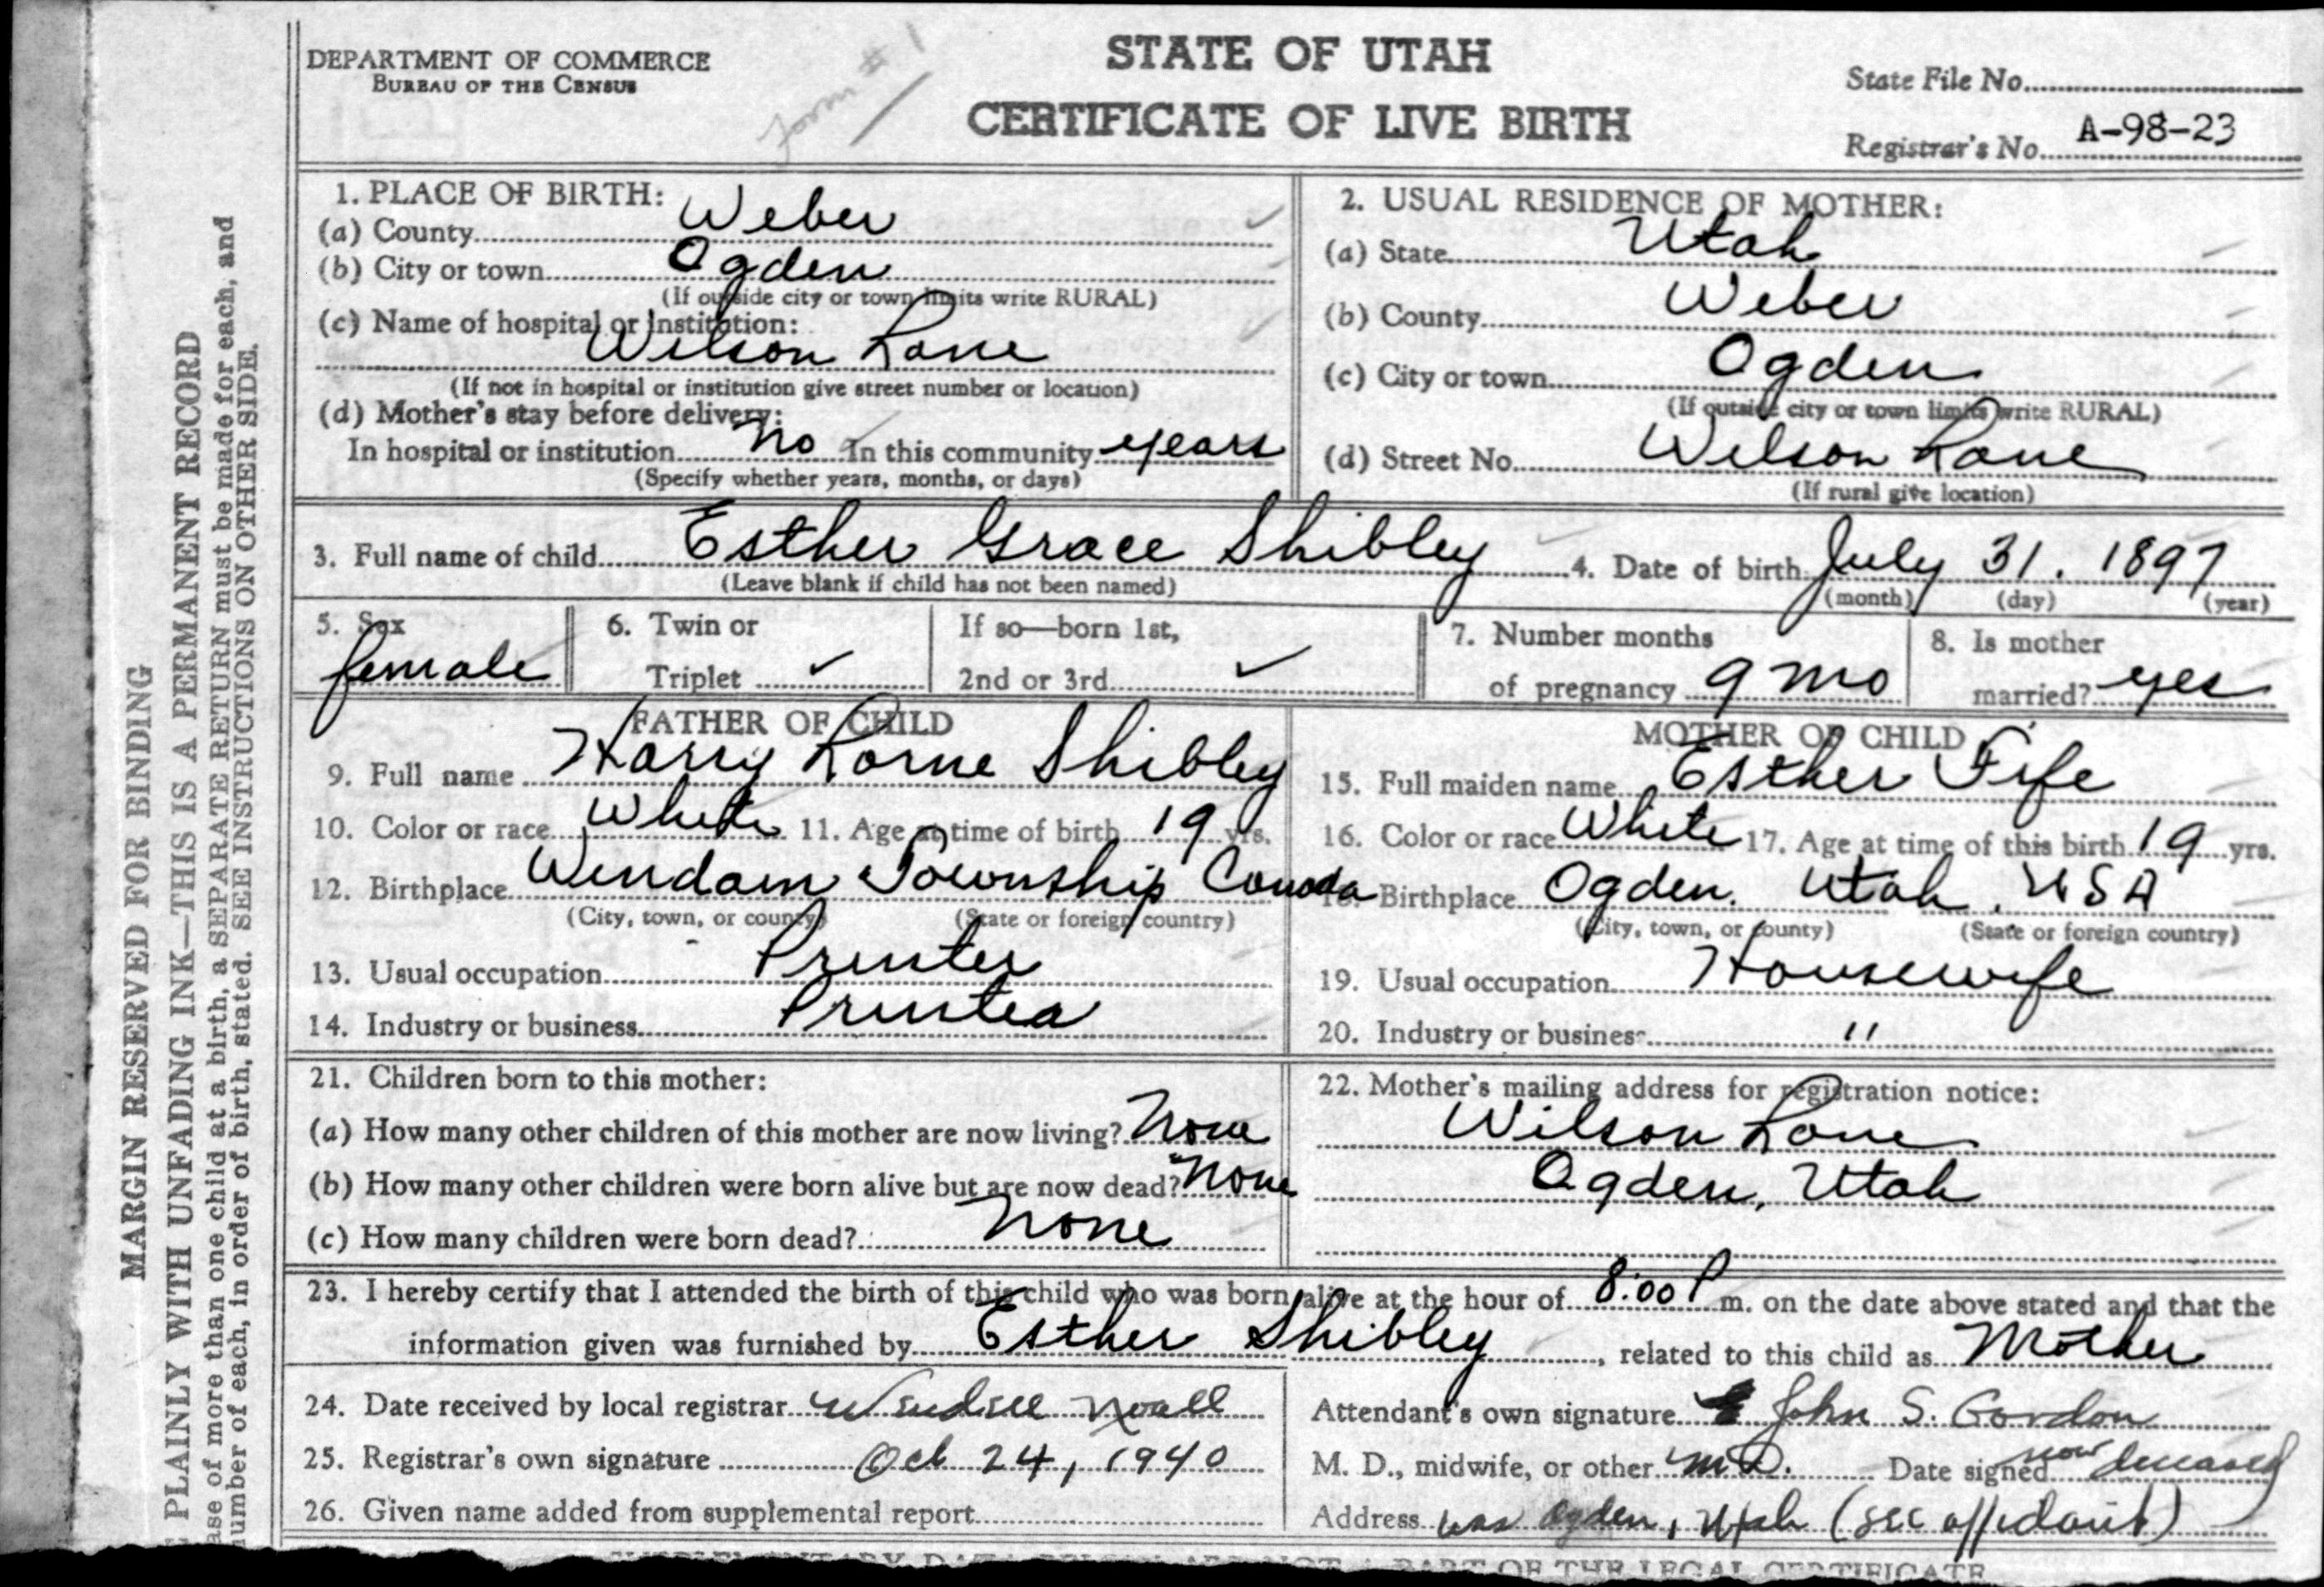 DEPARTMENT OF COMMERCE
BUREAU OF THE CENSUS
form # 1
STATE OF UTAH
CERTIFICATE OF LIVE BIRTH
State File No.
Registrar's No. A-98-23
MARGIN RESERVED FOR BINDING
PLAINLY WITH UNFADING INK—THIS IS A PERMANENT RECORD
ase of more than one child at a birth, a SEPARATE RETURN must be made for each, and
number of each, in order of birth, stated. SEE INSTRUCTIONS ON OTHER SIDE.
1. PLACE OF BIRTH:
(a) County Weber
(b) City or town Ogden
(If outside city or town limits write RURAL)
(c) Name of hospital or institution:
Wilson Lane
(If not in hospital or institution give street number or location)
(d) Mother's stay before delivery:
In hospital or institution no In this community years
(Specify whether years, months, or days)
2. USUAL RESIDENCE OF MOTHER:
(a) State Utah
(b) County Weber
(c) City or town Ogden
(If outside city or town limits write RURAL)
(d) Street No. Wilson Lane
(If rural give location)
3. Full name of child Esther Grace Shibley 4. Date of birth July 31. 1897
(Leave blank if child has not been named) (month) (day) (year)
5. Sex female
6. Twin or Triplet ✓
If so—born 1st, 2nd or 3rd ✓
7. Number months of pregnancy 9 mo
8. Is mother married? yes
FATHER OF CHILD
9. Full name Harry Lorne Shibley
10. Color or race White 11. Age at time of birth 19 yrs.
12. Birthplace Wendom Township Canada
(City, town, or county) (State or foreign country)
13. Usual occupation Printer
14. Industry or business Printer
MOTHER OF CHILD
15. Full maiden name Esther Fife
16. Color or race White 17. Age at time of this birth 19 yrs.
18. Birthplace Ogden. Utah. USA
(City, town, or county) (State or foreign country)
19. Usual occupation Housewife
20. Industry or business "
21. Children born to this mother:
(a) How many other children of this mother are now living? None
(b) How many other children were born alive but are now dead? None
(c) How many children were born dead? None
22. Mother's mailing address for registration notice:
Wilson Lane
Ogden, Utah
23. I hereby certify that I attended the birth of this child who was born alive at the hour of 8:00 P m. on the date above stated and that the
information given was furnished by Esther Shibley, related to this child as Mother
24. Date received by local registrar
25. Registrar's own signature Oct 24, 1940
26. Given name added from supplemental report
Attendant's own signature John S. Gordon
M. D., midwife, or other M.D. Date signed now deceased
Address was Ogden, Utah (see affidavit)
SUPPLEMENTARY DATA BELOW ARE NOT A PART OF THE LEGAL CERTIFICATE